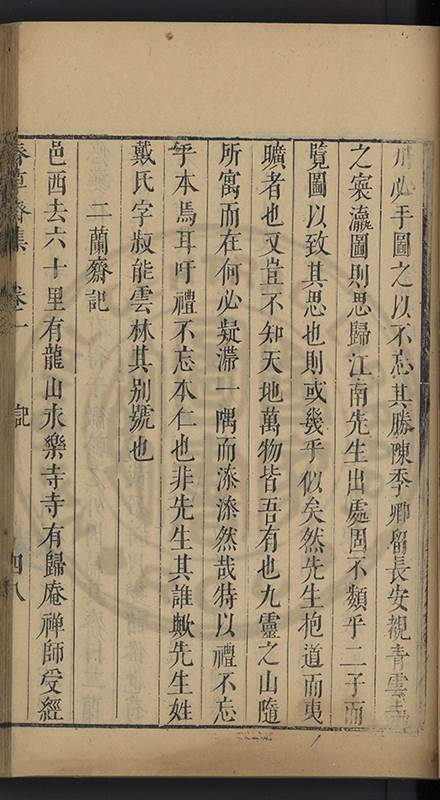 必手圖之以不忘其勝陳季卿留長安覩青雲寺
之寰瀛圖則思歸江南先生出處固不類乎二子而
覽圖以致其思也則或幾乎似矣然先生抱道而夷
曠者也又豈不知天地萬物皆吾有也九靈之山隨
所寓而在何必凝滯一隅而添添然哉特以禮不忘
乎本焉耳吁禮不忘本仁也非先生其誰歟先生姓
戴氏字叔能雲林其别號也
二蘭齋記
邑西去六十里有龍山永樂寺寺有歸庵禪師受經
春草齋集 卷一 記 四八